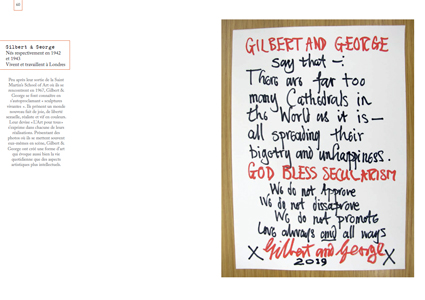 60
Gilbert & George
Nés respectivement en 1942
et 1943
Vivent et travaillent à Londres
Peu après leur sortie de la Saint
Martin's School of Art où ils se
rencontrent en 1967, Gilbert &
George se font connaître en
s'autoproclamant « sculptures
vivantes ». Ils prônent un monde
nouveau fait de joie, de liberté
sexuelle, réaliste et vif en couleurs.
Leur devise « L'Art pour tous »
s'exprime dans chacune de leurs
réalisations. Présentant des
photos où ils se mettent souvent
eux-mêmes en scène, Gilbert &
George ont créé une forme d'art
qui évoque aussi bien la vie
quotidienne que des aspects
artistiques plus intellectuels.
GILBERT AND GEORGE
say that —:
There are far too
many Cathedrals in
the World as it is —
all spreading their
bigotry and unhappiness.
GOD BLESS SECULARISM
We do not Approve
We do not dissaprove
We do not promote
Love always and all ways
X Gilbert and George X
2019